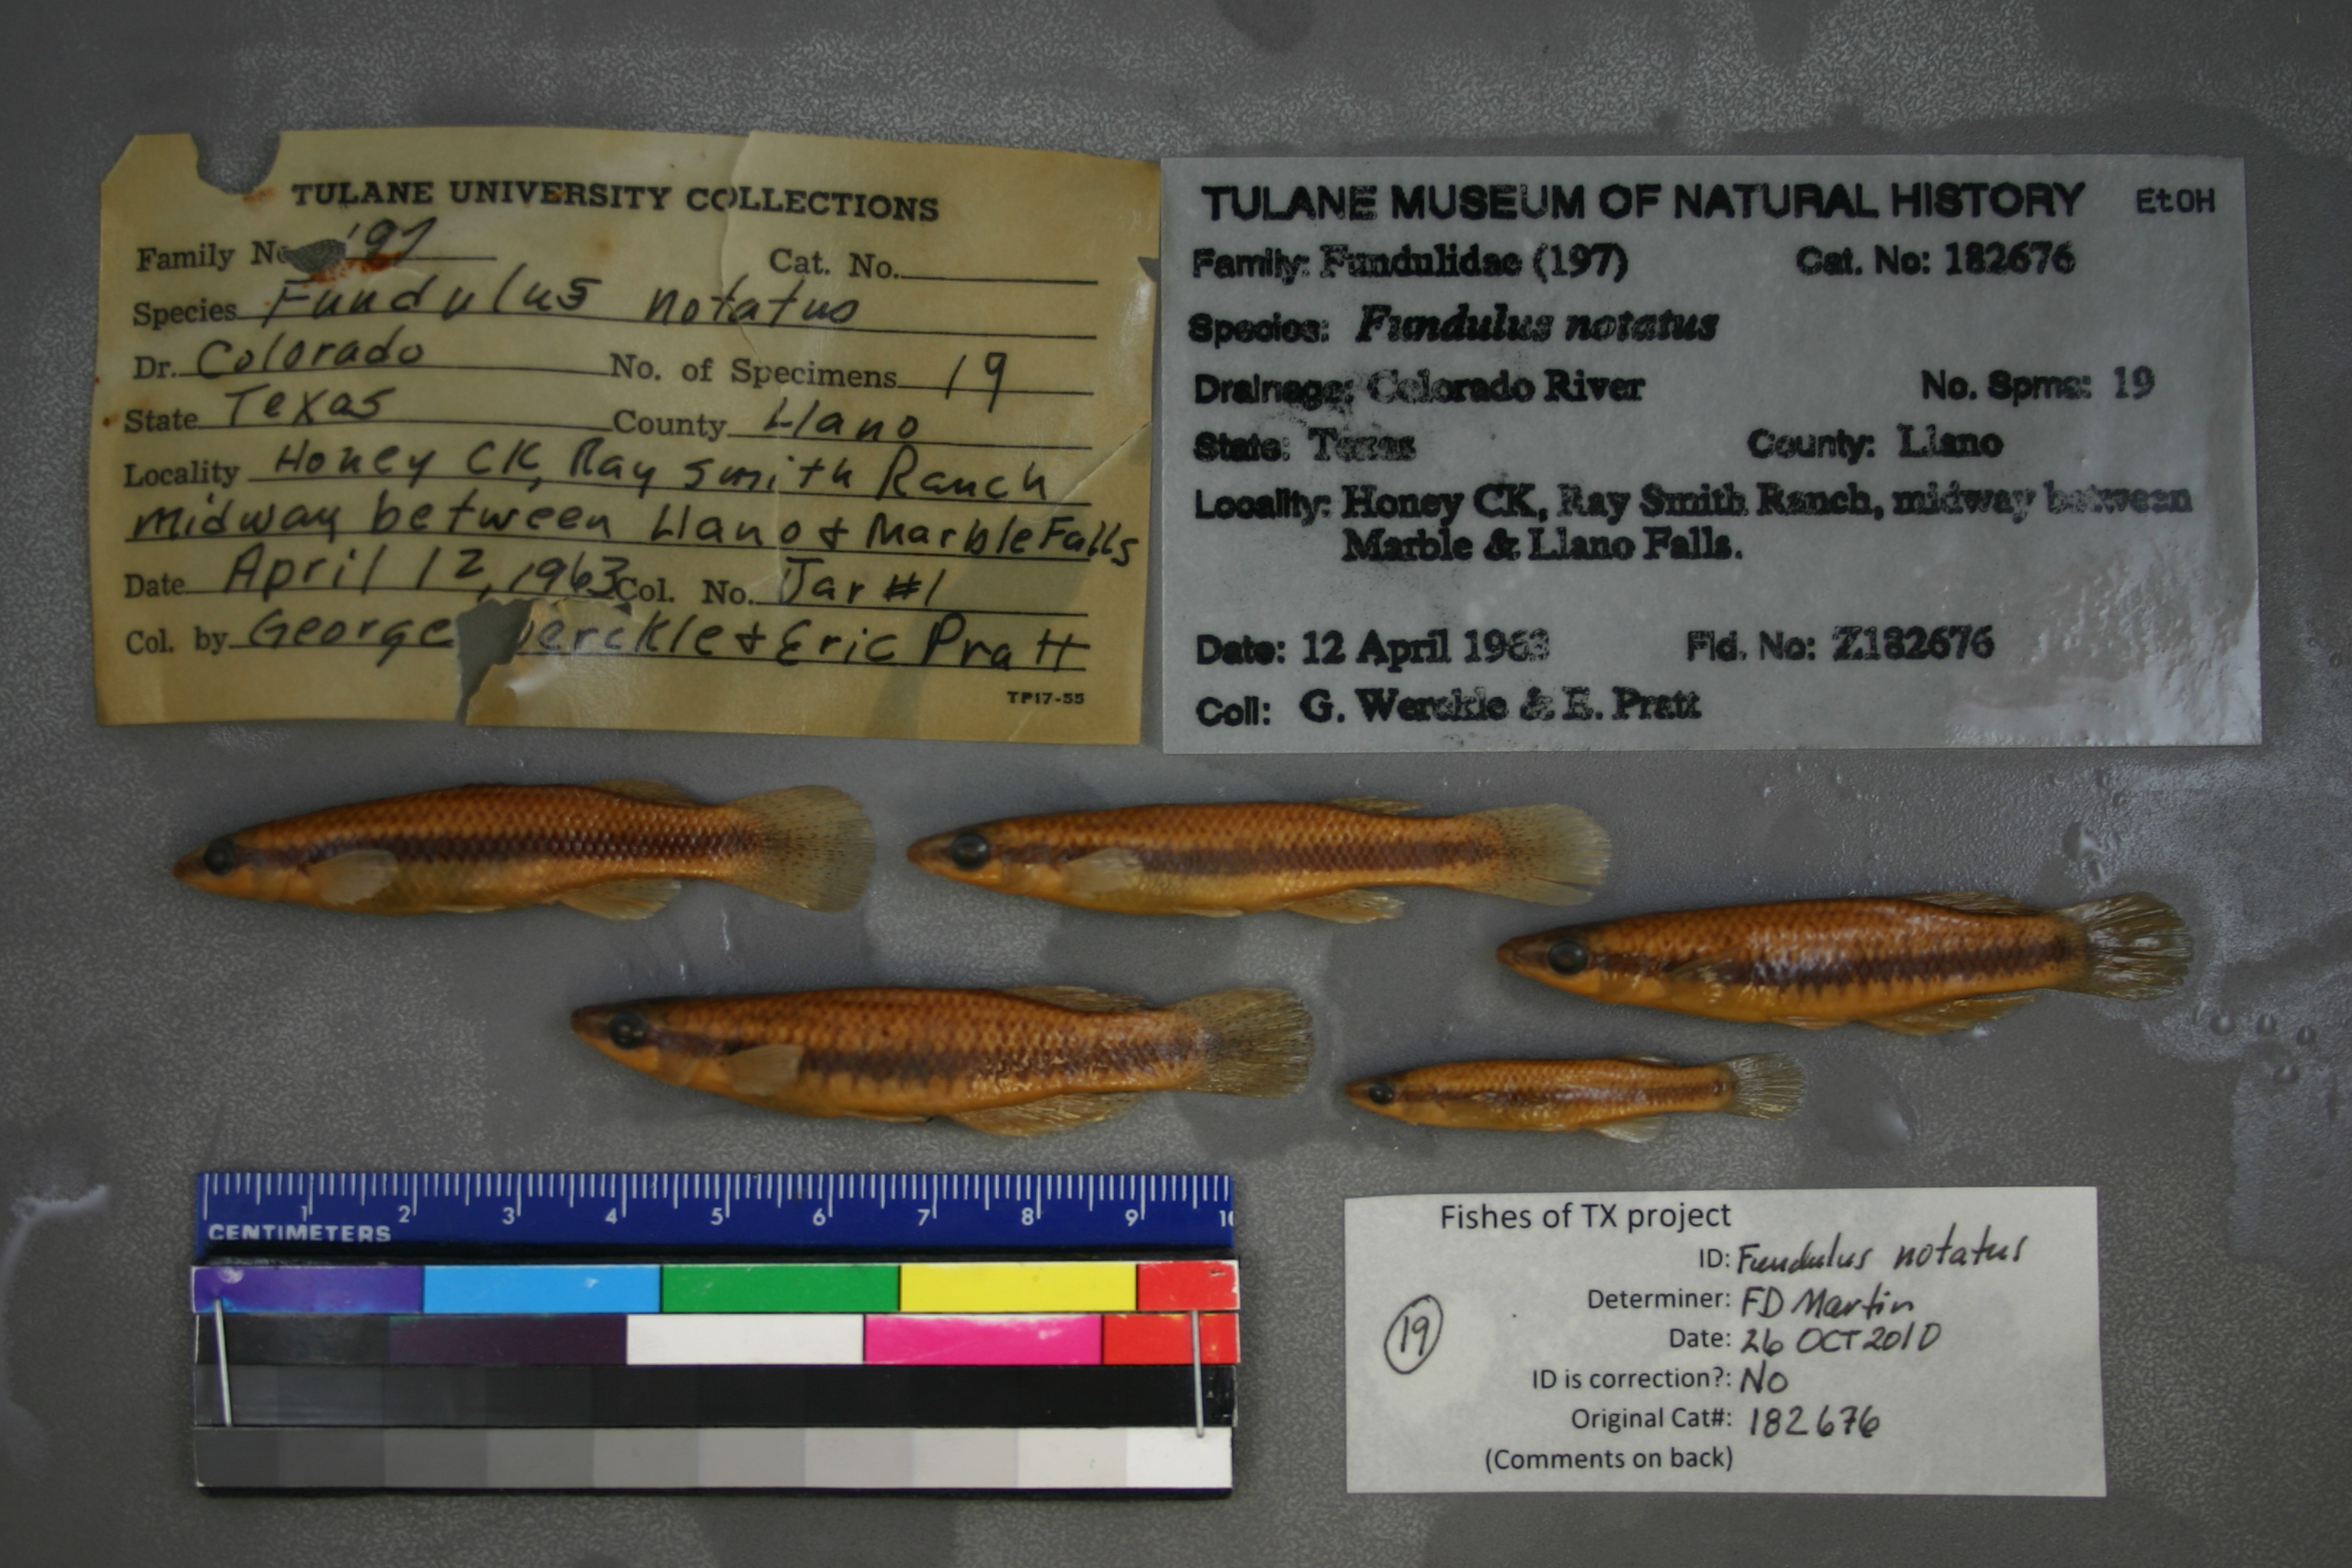 TULANE UNIVERSITY COLLECTIONS
Family No 197 Cat. No.
Species Fundulus notatus
Dr. Colorado No. of Specimens 19
State Texas County Llano
Locality Honey CK, Ray Smith Ranch
midway between Llano & Marble Falls
Date April 12, 1963 Col. No. Jar #1
Col. by George Werckle & Eric Pratt
TP17-55
TULANE MUSEUM OF NATURAL HISTORY EtOH
Family: Fundulidae (197) Cat. No: 182676
Species: Fundulus notatus
Drainage: Colorado River No. Spms: 19
State: Texas County: Llano
Locality: Honey CK, Ray Smith Ranch, midway between
Marble & Llano Falls.
Date: 12 April 1963 Fld. No: Z182676
Coll: G. Werckle & E. Pratt
1 2 3 4 5 6 7 8 9 10
CENTIMETERS
Fishes of TX project
ID: Fundulus notatus
Determiner: FD Martin
19
Date: 26 OCT 2010
ID is correction?: No
Original Cat#: 182676
(Comments on back)